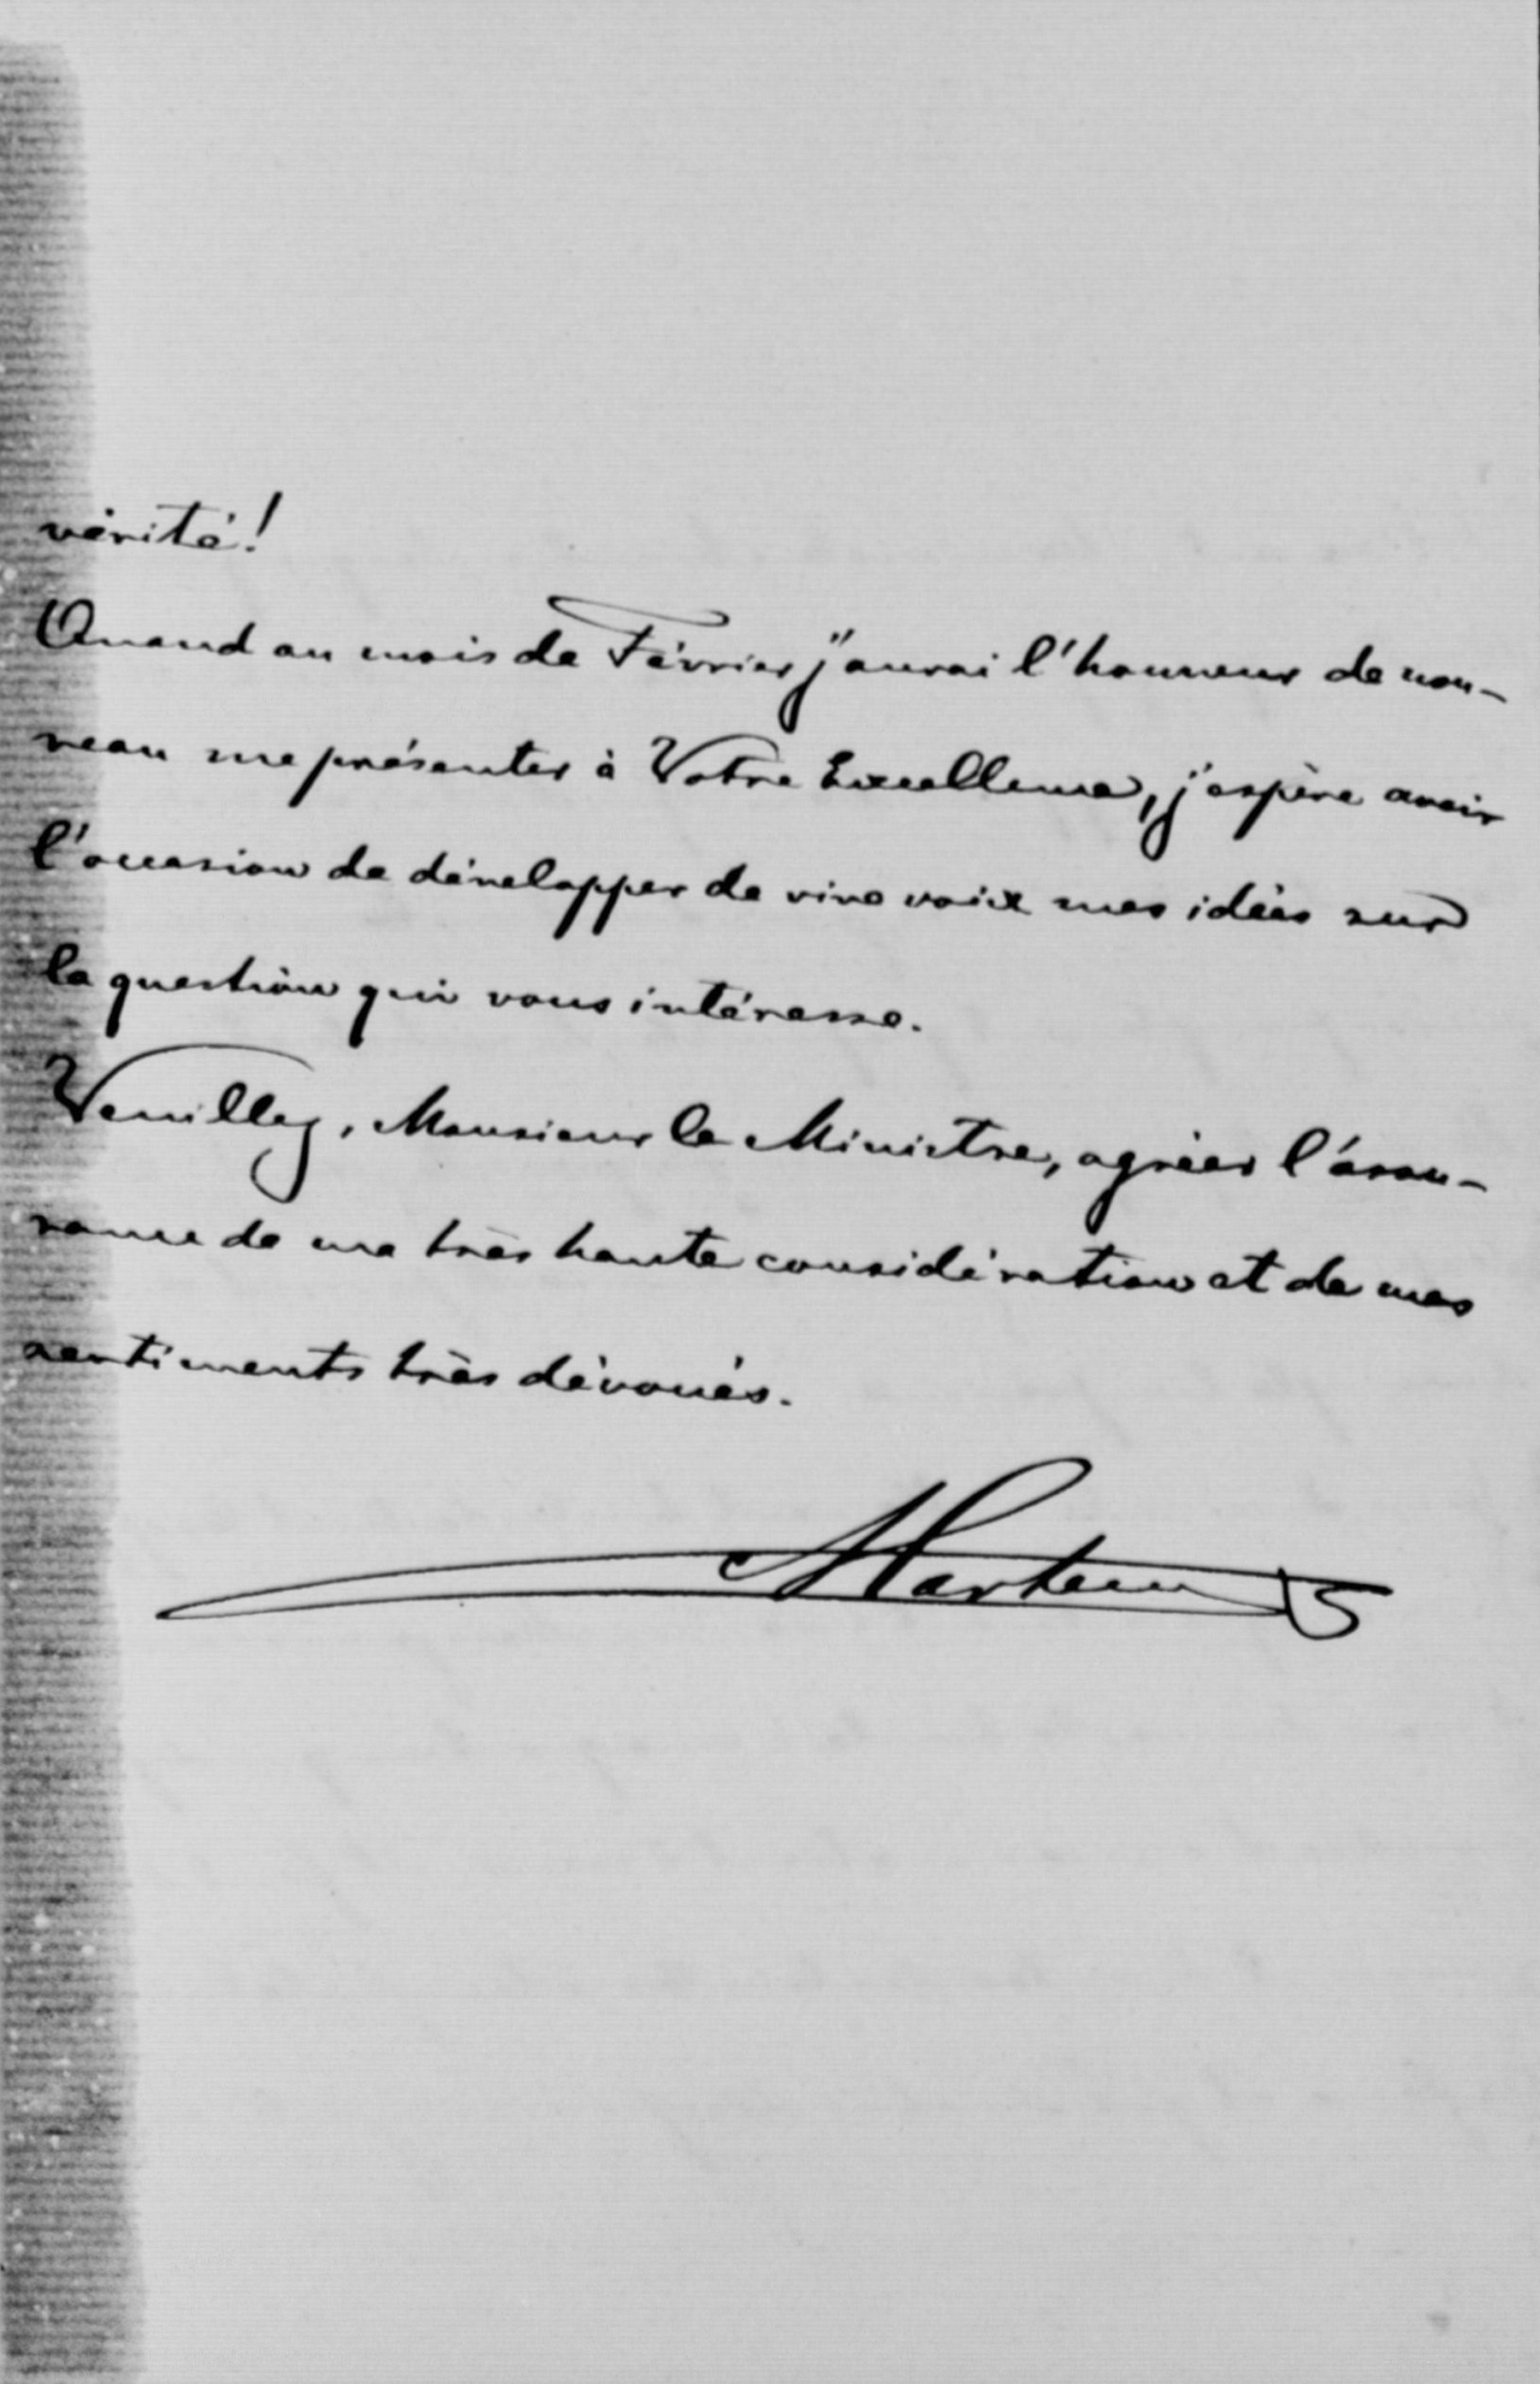 vérité!
Quand au mois de Février j'aurai l'honneur de nou-
veau me présenter à Votre Excellence, j'espère avoir
l'occasion de développer de vive voix mes idées sur
la question qui vous intéresse.
Veuillez, Monsieur le Ministre, agréer l'assu-
rance de ma très haute considération et de mes
sentiments très dévoués.
Martens